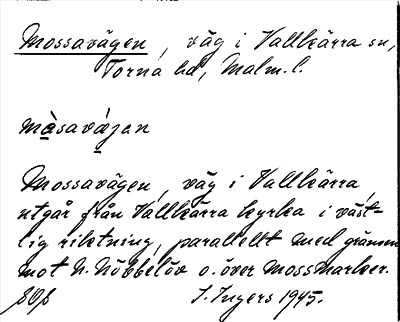 Mossavägen, väg i Vallkärra sn,
Torna hd, Malm. l.
màsavä́gen
Mossavägen, väg i Vallkärra,
utgår från Vallkärra kyrka i väst-
lig riktning, parallellt med gränsen
mot N. Nöbbelöv o. över mossmarker.
I. Ingers 1945.